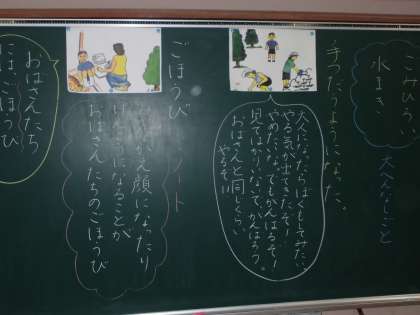 ごみひろい
水まき
大へんなしごと
手つだうようになった。
大人になったらぼくもしてみたい。
やる気が出てきたぞ！
やめたいな。でもがんばるぞ！
見てはいないで、がんばろう。
おばさんと同じくらい
やるぞ!!!
ごほうび
ノート
がえ顔になったり
になることが
おばさんたちのごほうび
おばさんたち
には、ごほうび